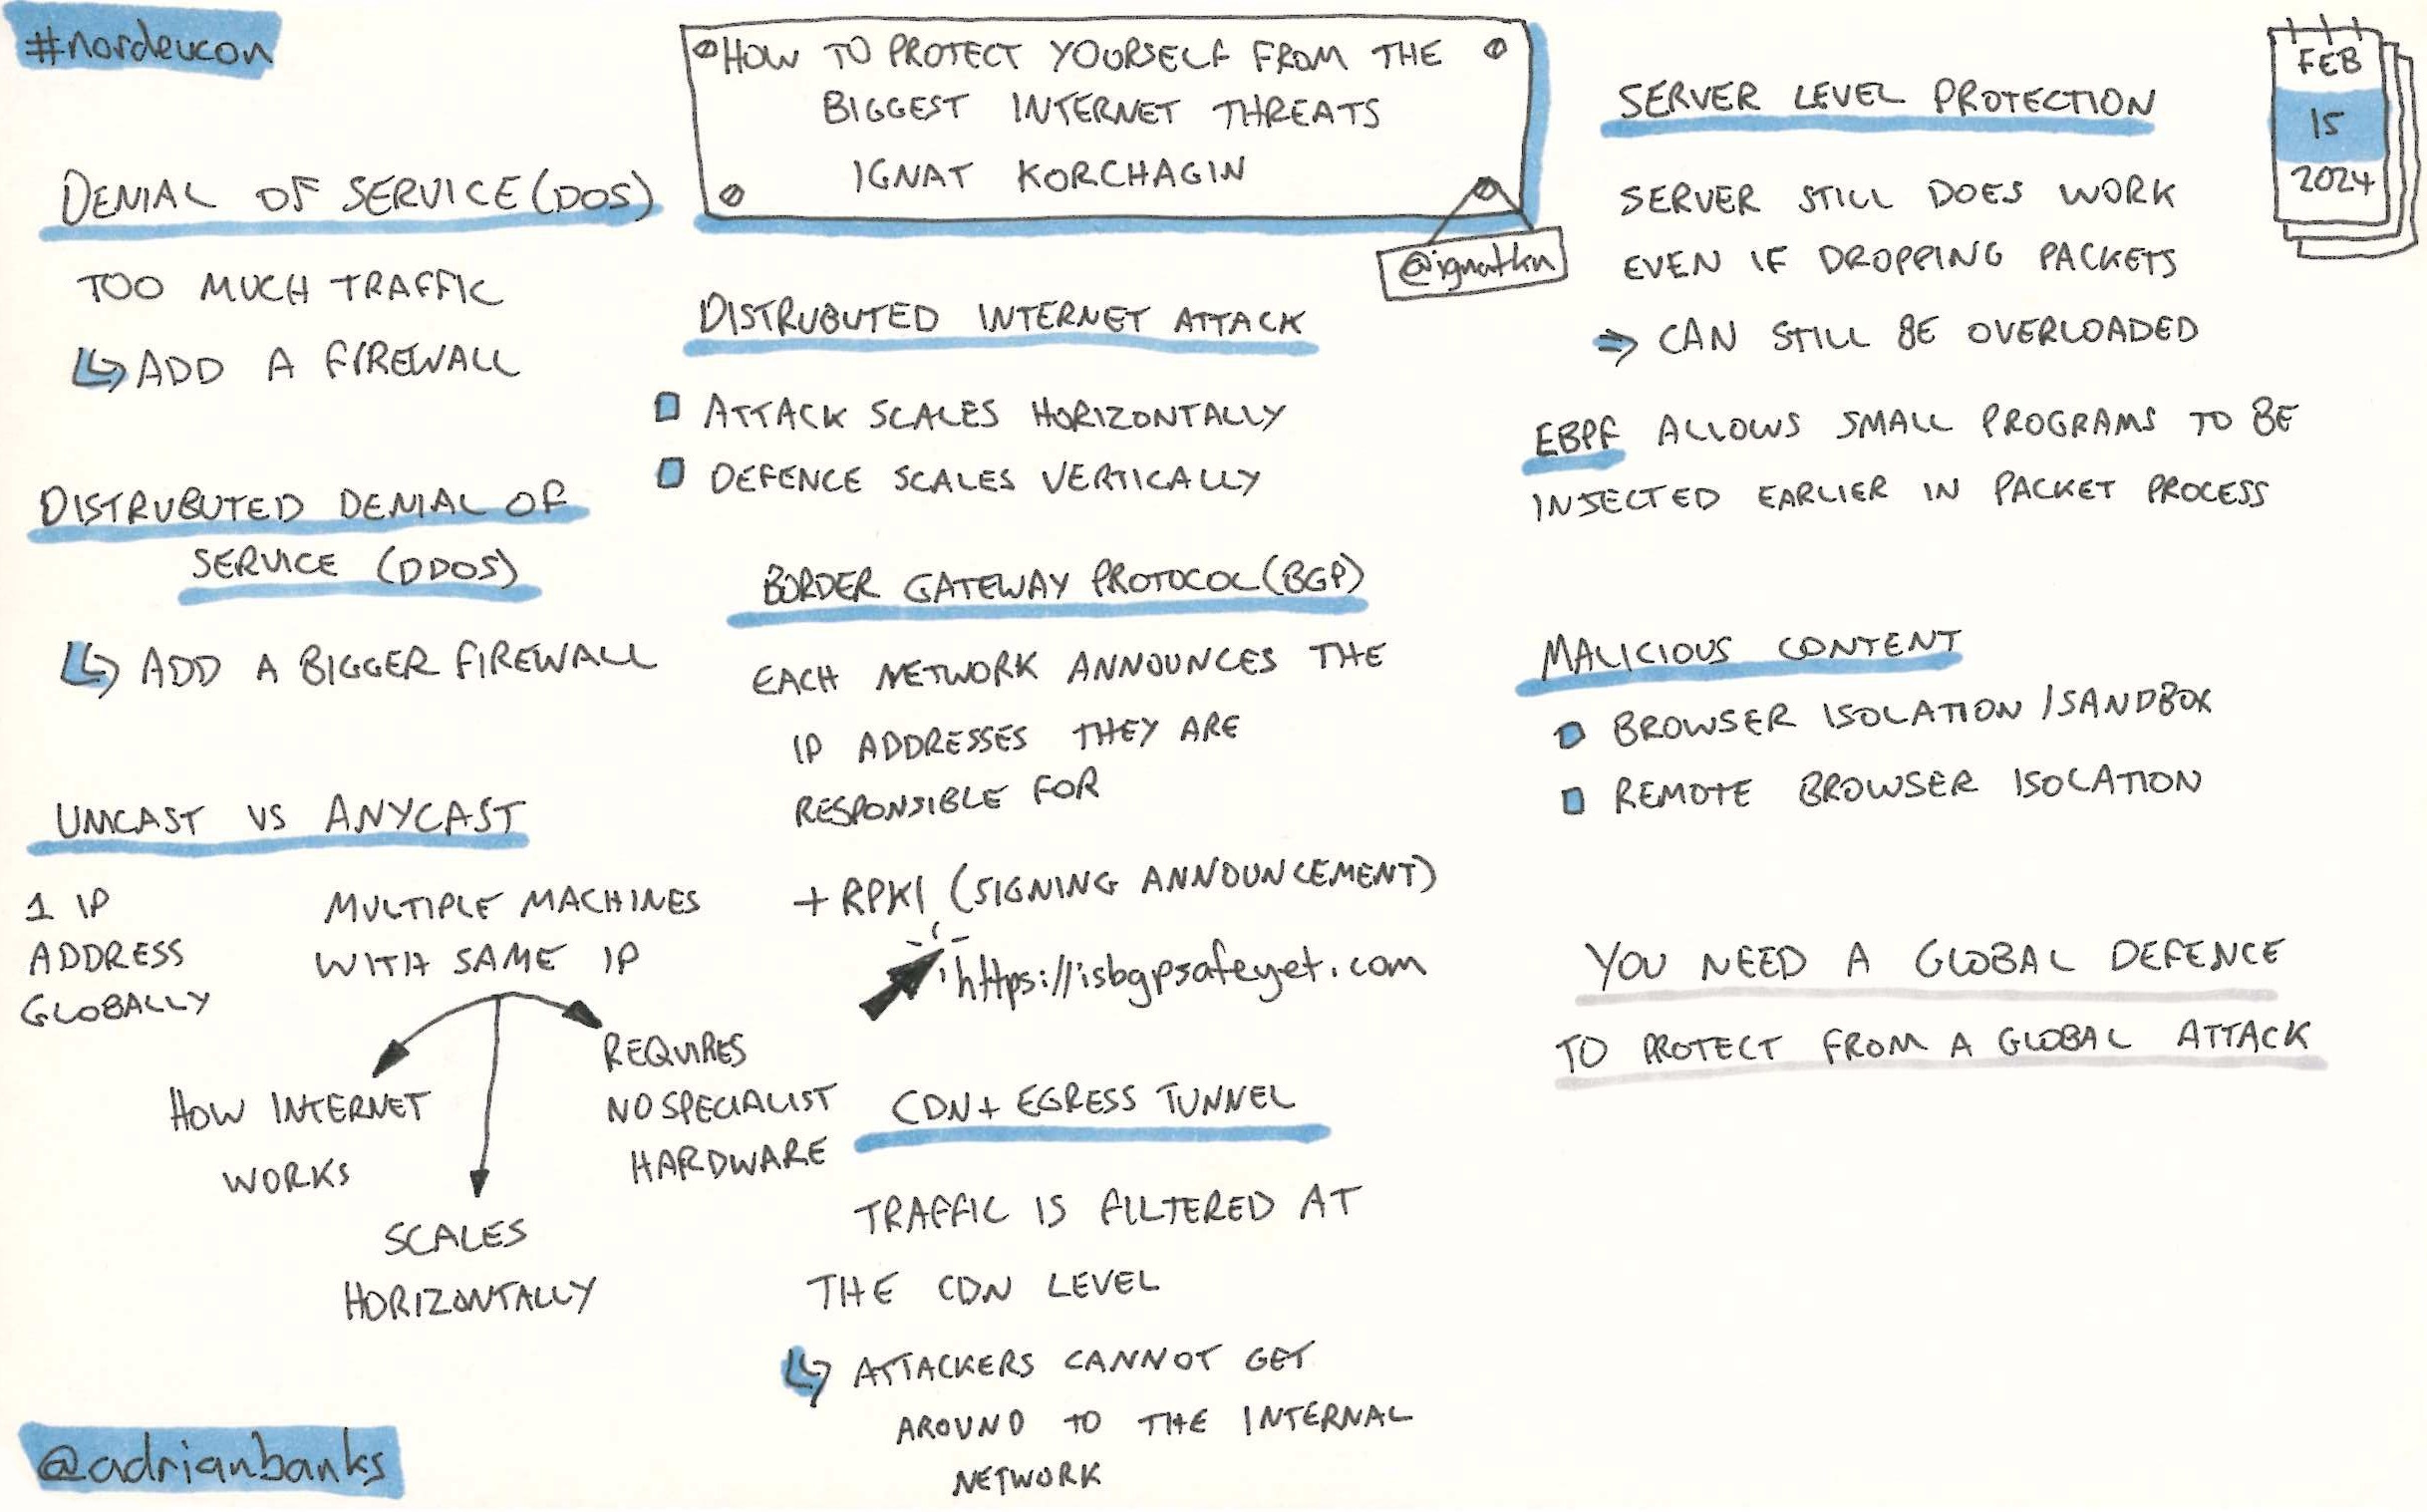 #nordevcon
HOW TO PROTECT YOURSELF FROM THE
BIGGEST INTERNET THREATS
IGNAT KORCHAGIN
@ignatkn
FEB
15
2024
DENIAL OF SERVICE (DOS)
TOO MUCH TRAFFIC
ADD A FIREWALL
DISTRUBUTED DENIAL OF
SERVICE (DDOS)
ADD A BIGGER FIREWALL
UNICAST VS ANYCAST
1 IP
ADDRESS
GLOBALLY
MULTIPLE MACHINES
WITH SAME IP
HOW INTERNET
WORKS
SCALES
HORIZONTALLY
REQUIRES
NO SPECIALIST
HARDWARE
DISTRUBUTED INTERNET ATTACK
ATTACK SCALES HORIZONTALLY
DEFENCE SCALES VERTICALLY
BORDER GATEWAY PROTOCOL (BGP)
EACH NETWORK ANNOUNCES THE
IP ADDRESSES THEY ARE
RESPONSIBLE FOR
+ RPKI (SIGNING ANNOUNCEMENT)
https://isbgpsafeyet.com
CDN + EGRESS TUNNEL
TRAFFIC IS FILTERED AT
THE CDN LEVEL
ATTACKERS CANNOT GET
AROUND TO THE INTERNAL
NETWORK
SERVER LEVEL PROTECTION
SERVER STILL DOES WORK
EVEN IF DROPPING PACKETS
⇒ CAN STILL BE OVERLOADED
EBPF ALLOWS SMALL PROGRAMS TO BE
INJECTED EARLIER IN PACKET PROCESS
MALICIOUS CONTENT
BROWSER ISOLATION / SANDBOX
REMOTE BROWSER ISOLATION
YOU NEED A GLOBAL DEFENCE
TO PROTECT FROM A GLOBAL ATTACK
@adrianbanks